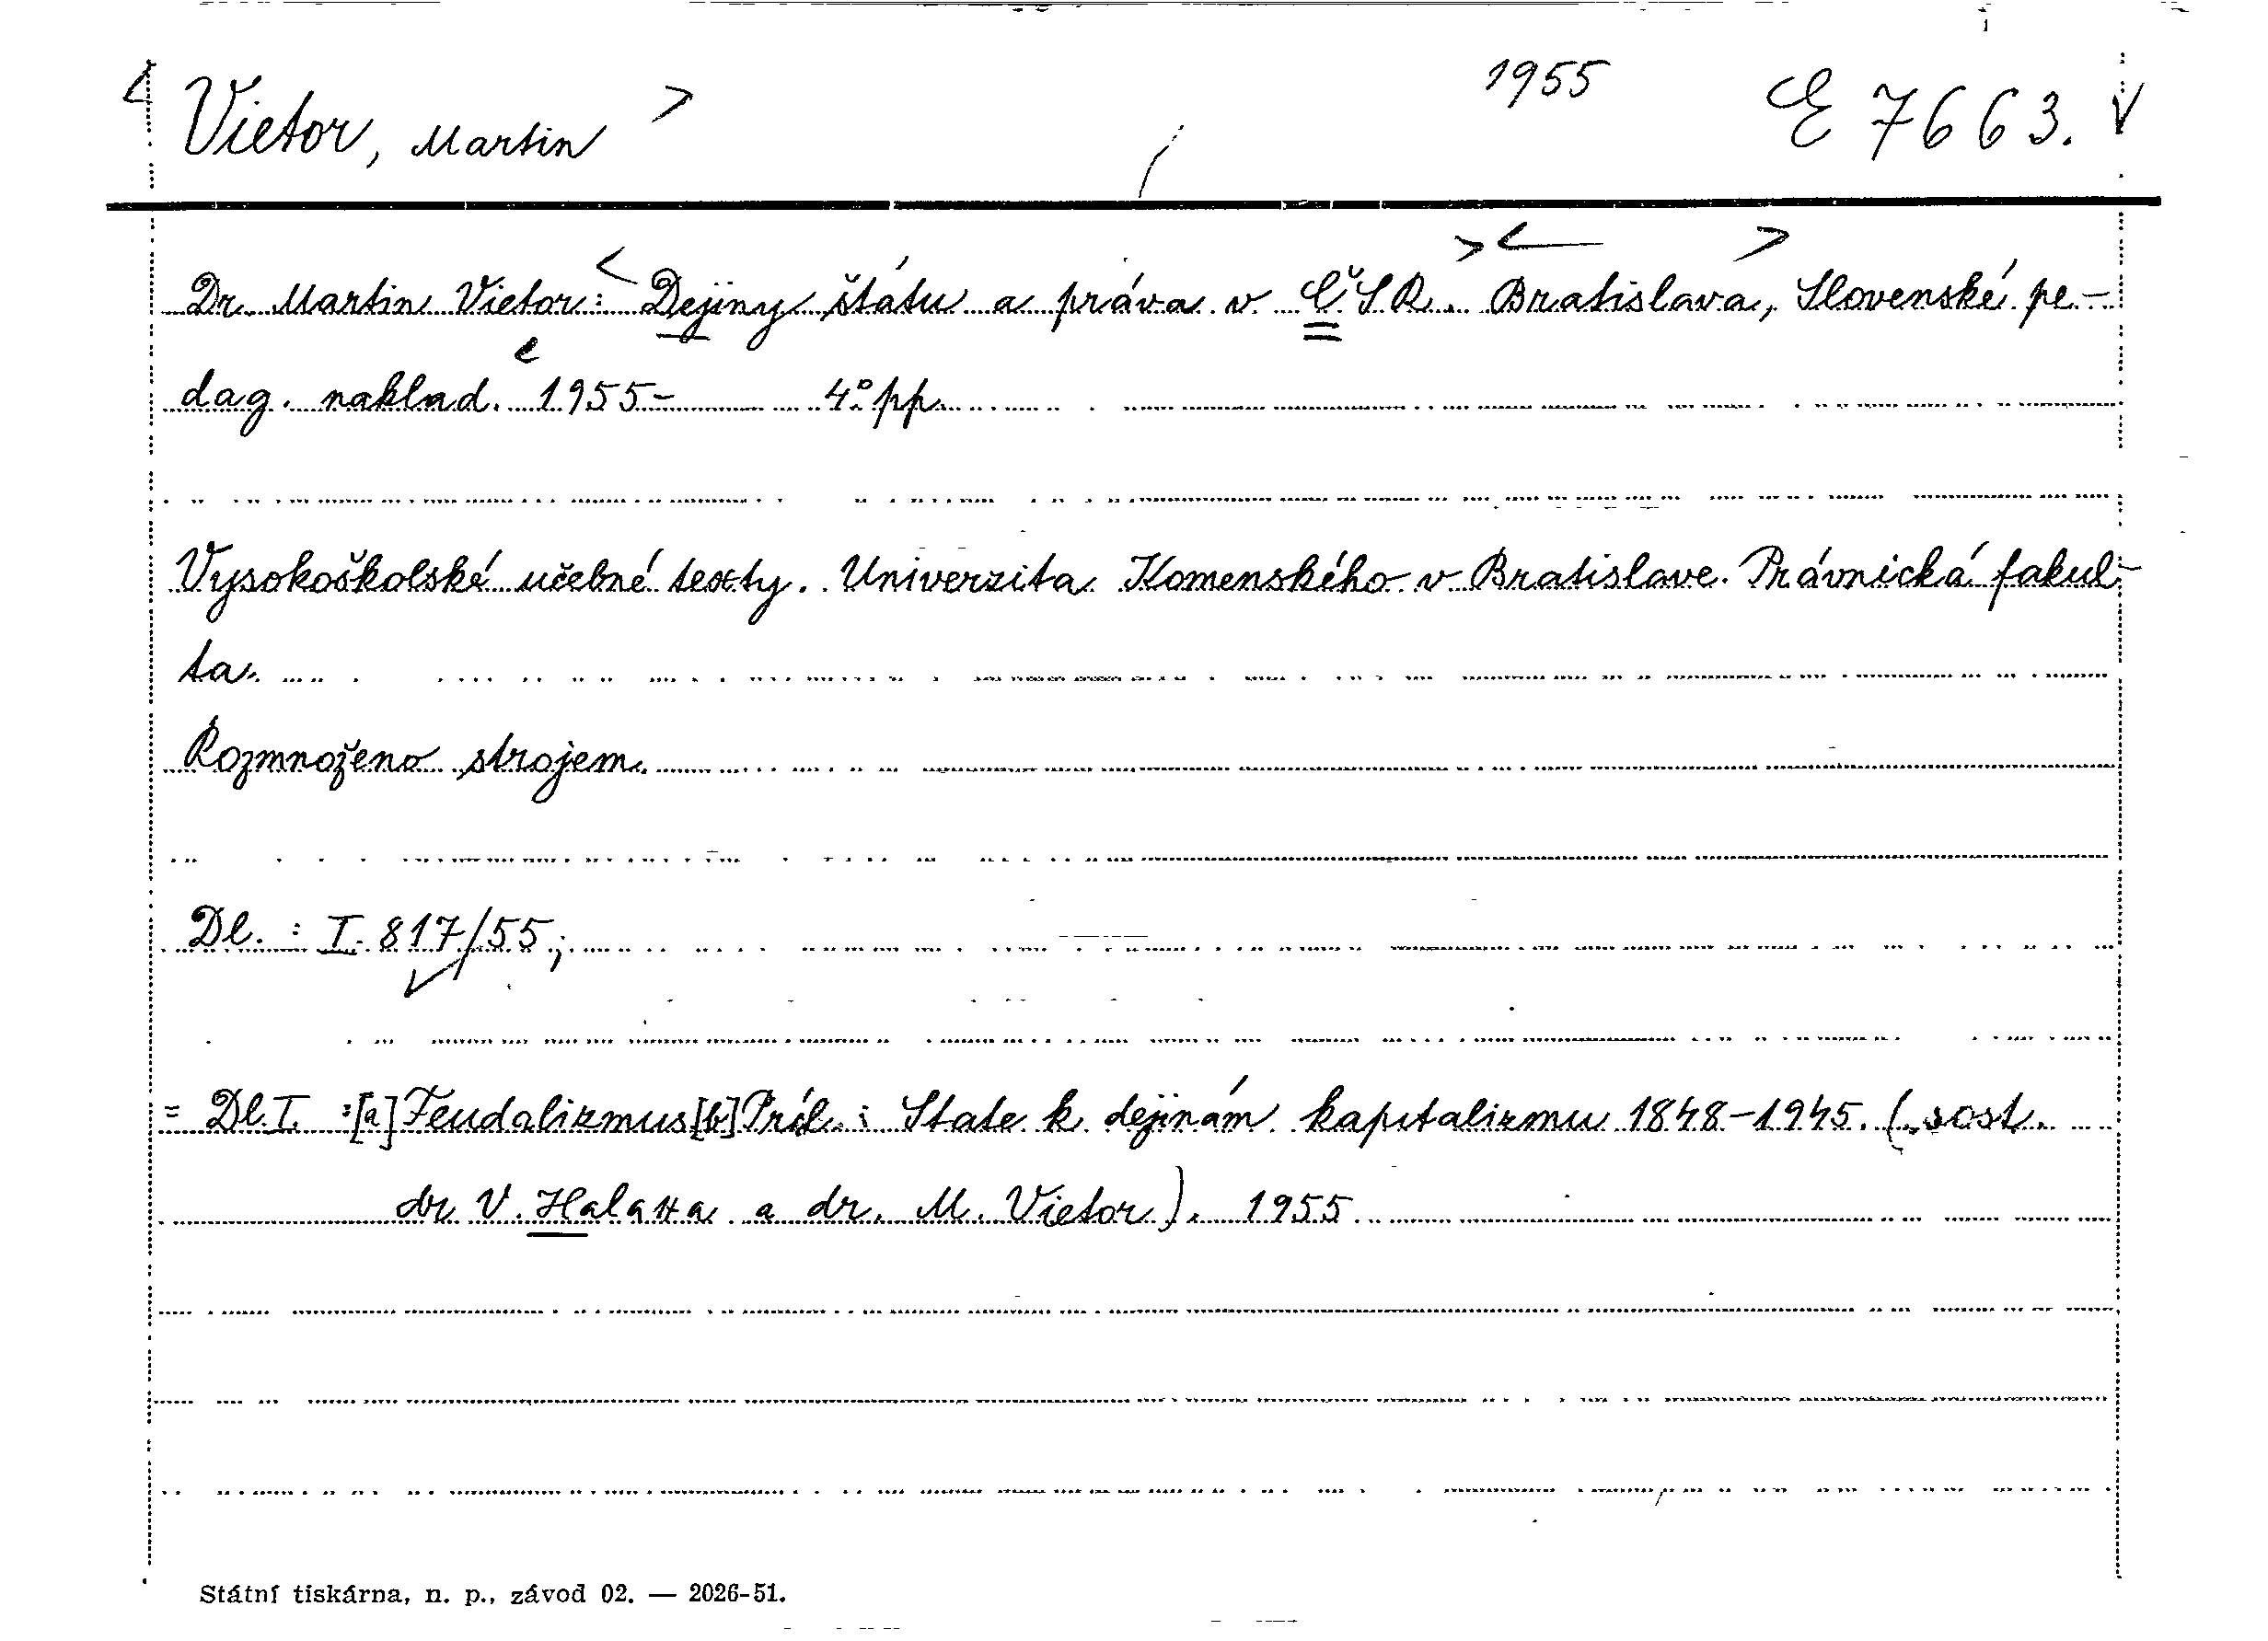 Vietor, Martin 1955 E 7663.
Dr. Martin Vietor: Dejiny štátu a práva v ČSR. Bratislava, Slovenské pe-
dag. naklad. 1955- 4° pp.
Vysokoškolské učebné texty. Univerzita Komenského v Bratislave. Právnická fakul-
ta.
Rozmnoženo strojem.
Dl. : I. 817/55;
= Dl. I. :[a] Feudalizmus [b] Príl. : State k dejinám kapitalizmu 1848-1945. (sost.
dr V. a dr. M. Vietor). 1955
Státní tiskárna, n. p., závod 02. — 2026-51.